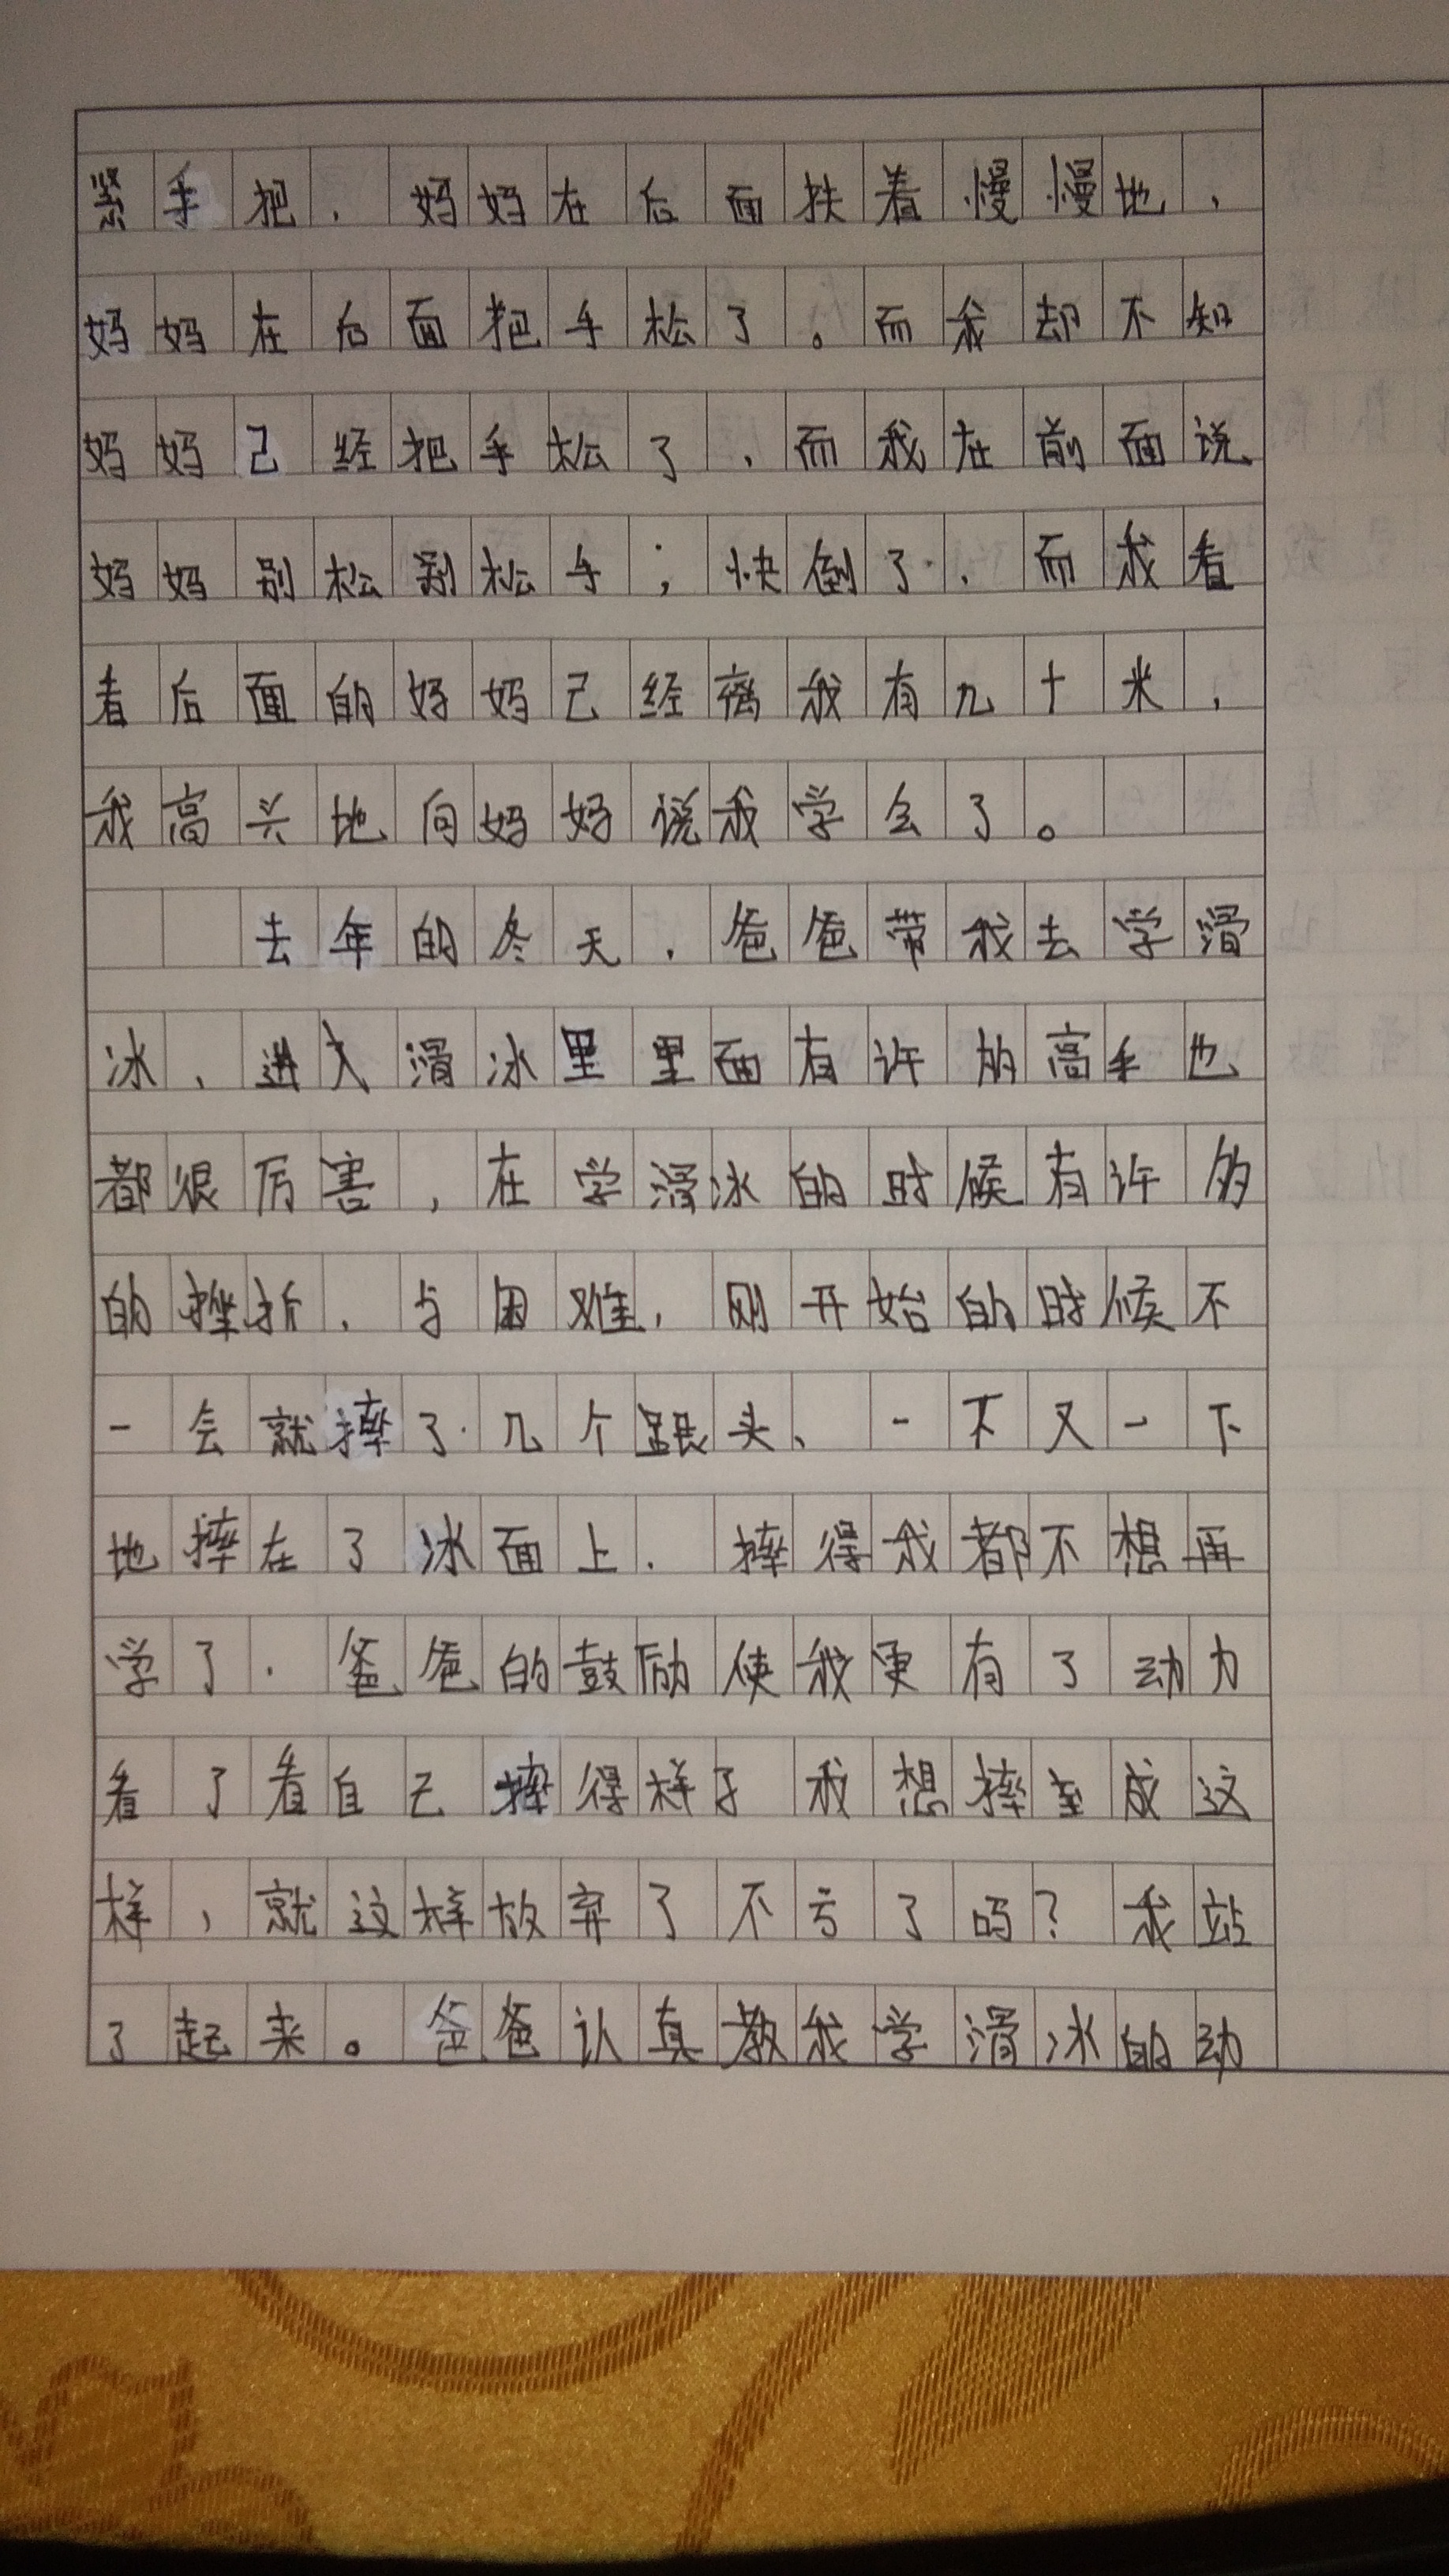 紧手把，妈妈在后面扶着慢慢地，
妈妈在后面把手松了。而我却不知
妈妈己经把手松了，而我在前面说
妈妈别松别松手；快倒了，而我看
看后面的好妈己经离我有九十米，
我高兴地向妈好说我学会了。
去年的冬天，爸爸带我去学滑
冰、进入滑冰里里面有许的高手也
都很厉害，在学滑冰的时候有许多
的挫折，与困难，刚开始的时候不
一会就摔了几个跟头、一不又一下
地摔在了冰面上．摔得我都不想再
学了．爸爸的鼓励使我更有了动力
看了看自己摔得样子我想摔成这
样，就这样放弃了不亏了吗？我站
了起来。爸爸认真教我学滑冰的动